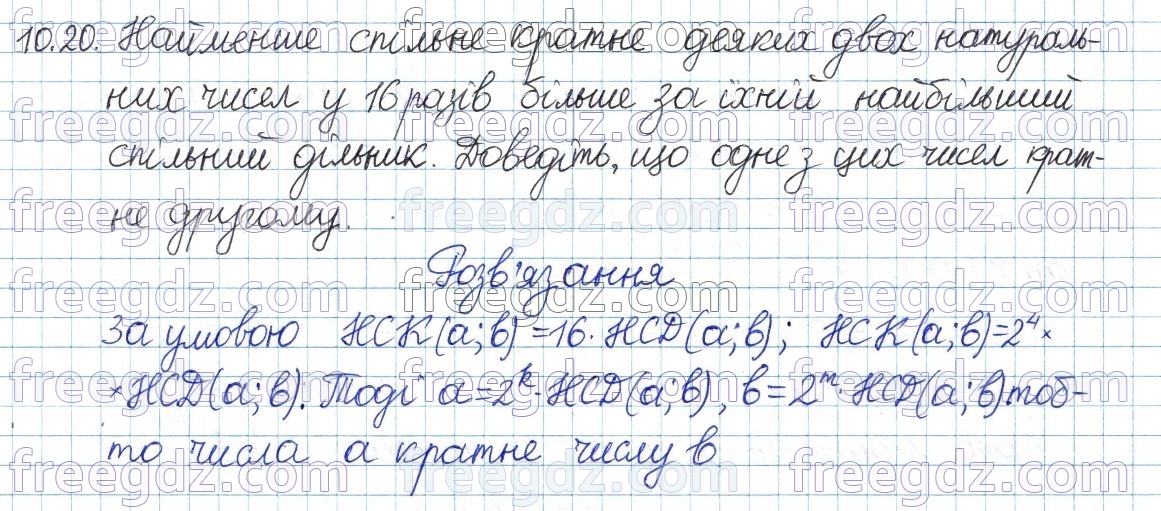 10.20. Найменше спільне кратне деяких двох натураль-
них чисел у 16 разів більше за їхній найбільший
спільний дільник. Доведіть, що одне з цих чисел крат-
не другому.
Розв'язання
За умовою НСК(а;в)=16·НСD(а;в); НСК(а;в)=2⁴×
×НСD(а;в). Тоді а=2ᵏ·НСD(а;в), в=2ᵐ·НСD(а;в) тоб-
то числа а кратне числу в
freegdz.com